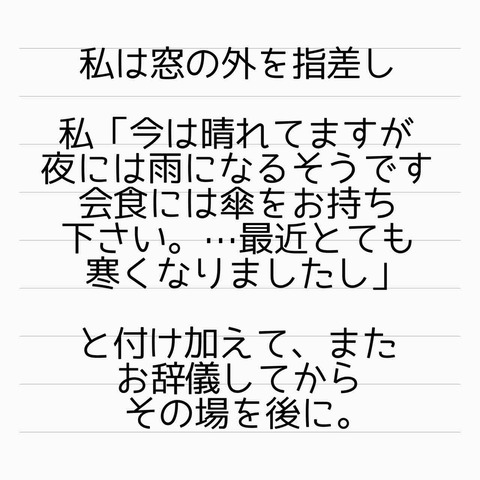 私は窓の外を指差し
私「今は晴れてますが
夜には雨になるそうです
会食には傘をお持ち
下さい。…最近とても
寒くなりましたし」
と付け加えて、また
お辞儀してから
その場を後に。